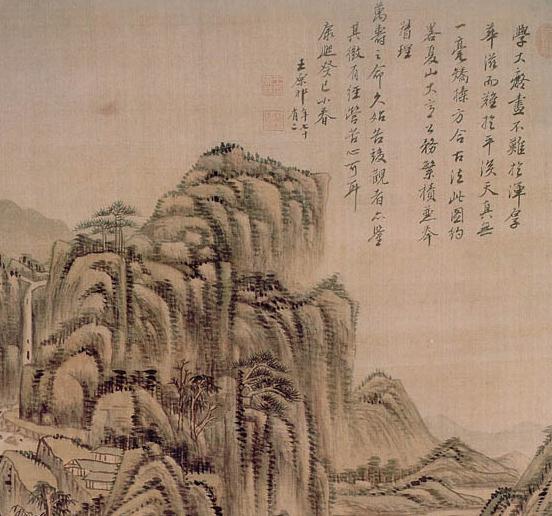 學大癡畫不難於渾厚
華滋而難於平淡天真無
一毫矯揉方合古法此圖約
夏山大意公務繁積奉
督理
萬壽之命久始告竣觀者亦鑒
其微有經營苦心可耳
康熙癸巳小春
王原祁年七十
有二